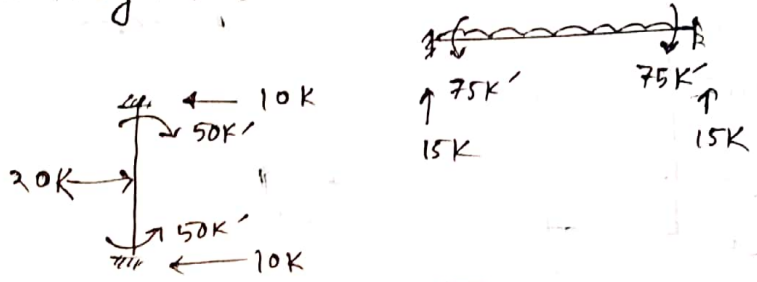 10K
50K'
20K
50K'
10K
75K'
75K'
15K
15K